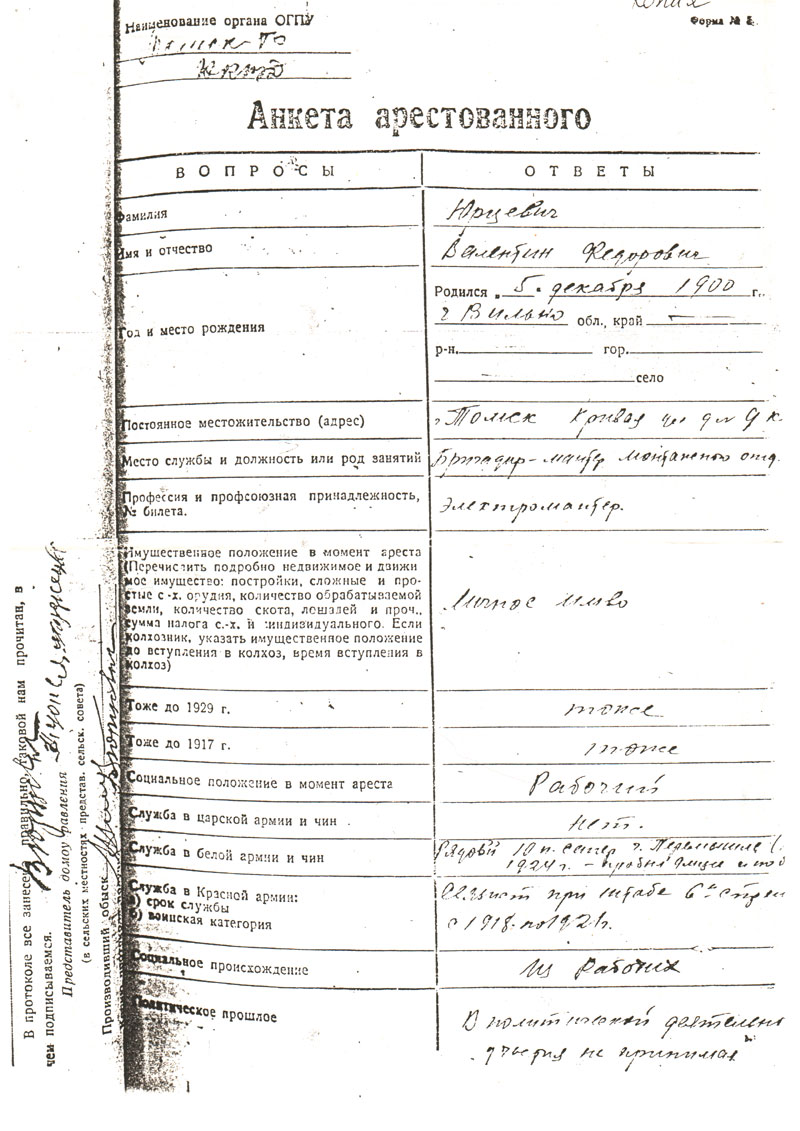 Копия
Наименование органа ОГПУ
Форма № 5.
Томск ГО
НКВД
Анкета арестованного
ВОПРОСЫ
ОТВЕТЫ
Фамилия
Юрцевич
Имя и отчество
Валентин Федорович
Год и место рождения
Родился „ 5. декабря 1900 г.
г Вильно обл., край
р-н. гор.
село
Постоянное местожительство (адрес)
г Томск Кривая
Место службы и должность или род занятий
Бригадир-монтер
Профессия и профсоюзная принадлежность,
№ билета.
Электромонтер.
Имущественное положение в момент ареста
(Перечислить подробно недвижимое и движи
мое имущество: постройки, сложные и про-
стые с-х. орудия, количество обрабатываемой
земли, количество скота, лешадей и проч.,
сумма налога с.-х. и индивидуального. Если
колхозник, указать имущественное положение
до вступления в колхоз, время вступления в
колхоз)
Личное
Тоже до 1929 г.
тоже
Тоже до 1917 г.
тоже
Социальное положение в момент ареста
Рабочий
Служба в царской армии и чин
нет.
Служба в белой армии и чин
Рядовой 10 п. сапер г.
1924 г.
Служба в Красной армии:
а) срок службы
б) воинская категория
при штабе 6й
с 1918. по 1921.
Социальное происхождение
из Рабочих
Политическое прошлое
В политической деятельно
участия не принимал
В протоколе все занесено правильно, таковой нам прочитан, в
чем подписываемся.
Представитель домоуправления
(в сельских местностях представ. сельск. совета)
Производивший обыск